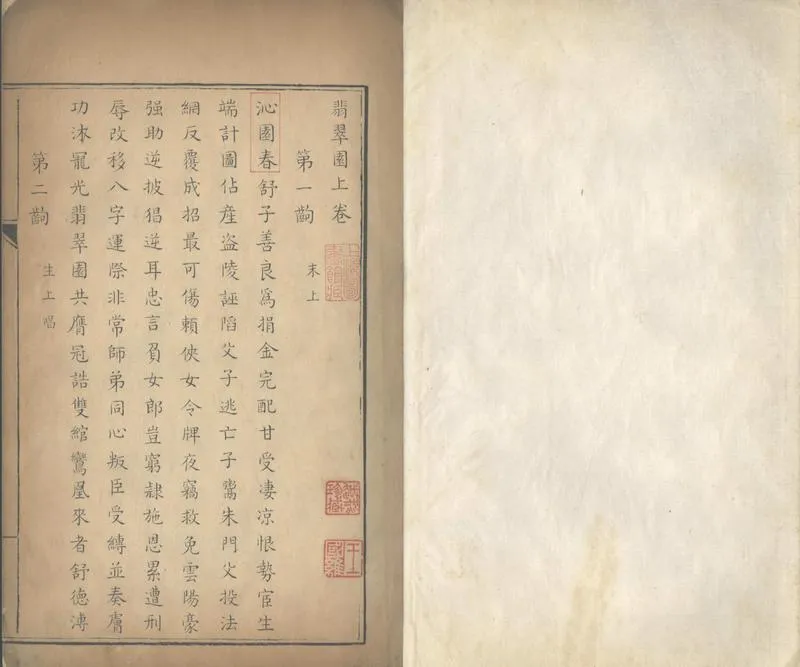 翡翠園上卷
第一齣 末上
沁園春舒子善良爲捐金完配甘受凄凉恨勢宦生
端計圖佔產盜陵誣陷父子逃亡子鬻朱門父投法
網反覆成招最可傷賴俠女令牌夜竊救免雲陽豪
强助逆披猖逆耳忠言負女郎豈窮隷施恩累遭刑
辱改移八字運際非常師弟同心叛臣受縛並奏膚
功沐寵光翡翠園共膺冠誥雙綰鸞凰來者舒德溥
第二齣 生上唱